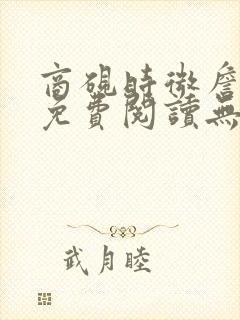 商硯時徵詹
免費閱讀無
武月睦